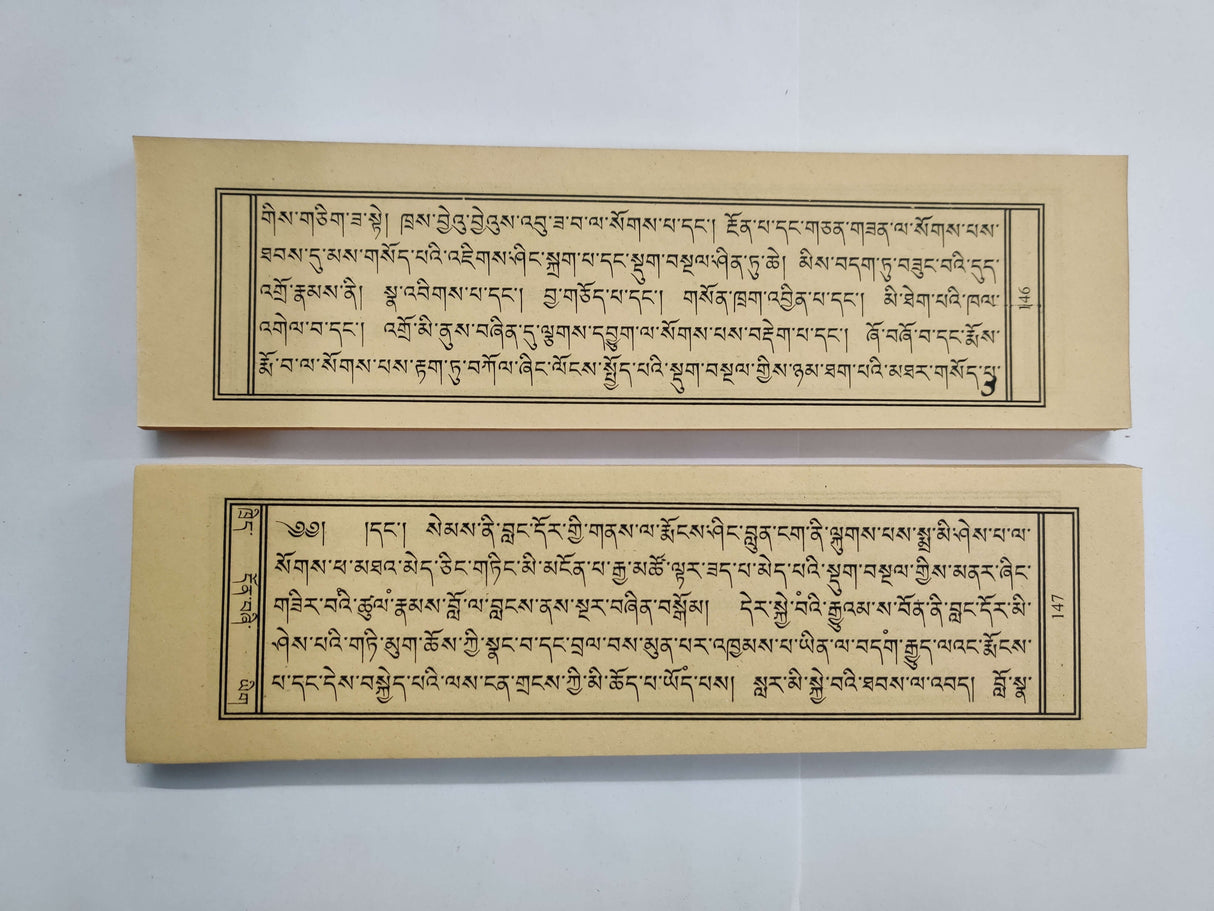 གིས་གཅིག་ཟ་སྟེ། ཁྲས་བྱེའུ་བྱེའུས་འབུ་ཟ་བ་ལ་སོགས་པ་དང་། རྔོན་པ་དང་གཅན་གཟན་ལ་སོགས་པས་
ཐབས་དུ་མས་གསོད་པའི་འཇིགས་ཤིང་སྐྲག་པ་དང་སྡུག་བསྔལ་ཤིན་ཏུ་ཆེ། མིས་བདག་ཏུ་བཟུང་བའི་དུད་
འགྲོ་རྣམས་ནི། སྣ་འབིགས་པ་དང་། བྱ་གཅོད་པ་དང་། གསོན་ཁྲག་འབྱིན་པ་དང་། མི་ཐེག་པའི་ཁལ་
འགེལ་བ་དང་། འགྲོ་མི་ནུས་བཞིན་དུ་ལྕགས་དབྱུག་ལ་སོགས་པས་བརྡེག་པ་དང་། ཞོ་བཞོ་བ་དང་རྨོས་
རྨོ་བ་ལ་སོགས་པས་རྟག་ཏུ་བཀོལ་ཞིང་ལོངས་སྤྱོད་པའི་སྡུག་བསྔལ་གྱིས་ཉམ་ཐག་པའི་མཐར་གསོད་པ་
146
༄༅། །དང་། སེམས་ནི་བླང་དོར་གྱི་གནས་ལ་རྨོངས་ཤིང་བླུན་ངག་ནི་ལྐུགས་པས་སྨྲ་མི་ཤེས་པ་ལ་
སོགས་པ་མཐའ་མེད་ཅིང་གཏིང་མི་མངོན་པ་རྒྱ་མཚོ་ལྟར་ཟད་པ་མེད་པའི་སྡུག་བསྔལ་གྱིས་མནར་ཞིང་
གཟིར་བའི་ཚུལཾ་རྣམས་བློ་ལ་བླངས་ནས་སྔར་བཞིན་བསྒོམ། དེར་སྐྱེ་བའི་རྒྱུའམ་ས་བོན་ནི་བླང་དོར་མི་
ཤེས་པའི་གཏི་མུག་ཆོས་ཀྱི་སྣང་བ་དང་བྲལ་བས་མུན་པར་འཁྱམས་པ་ཡིན་ལ་བདགཾ་རྒྱུད་ལའང་རྨོངས་
པ་དང་དེས་བསྐྱེད་པའི་ལས་ངན་གྲངས་ཀྱི་མི་ཆོད་པ་ཡོདཾ་པས། སླར་མི་སྐྱེ་བའི་ཐབས་ལ་འབད། བློ་སྣ་
147